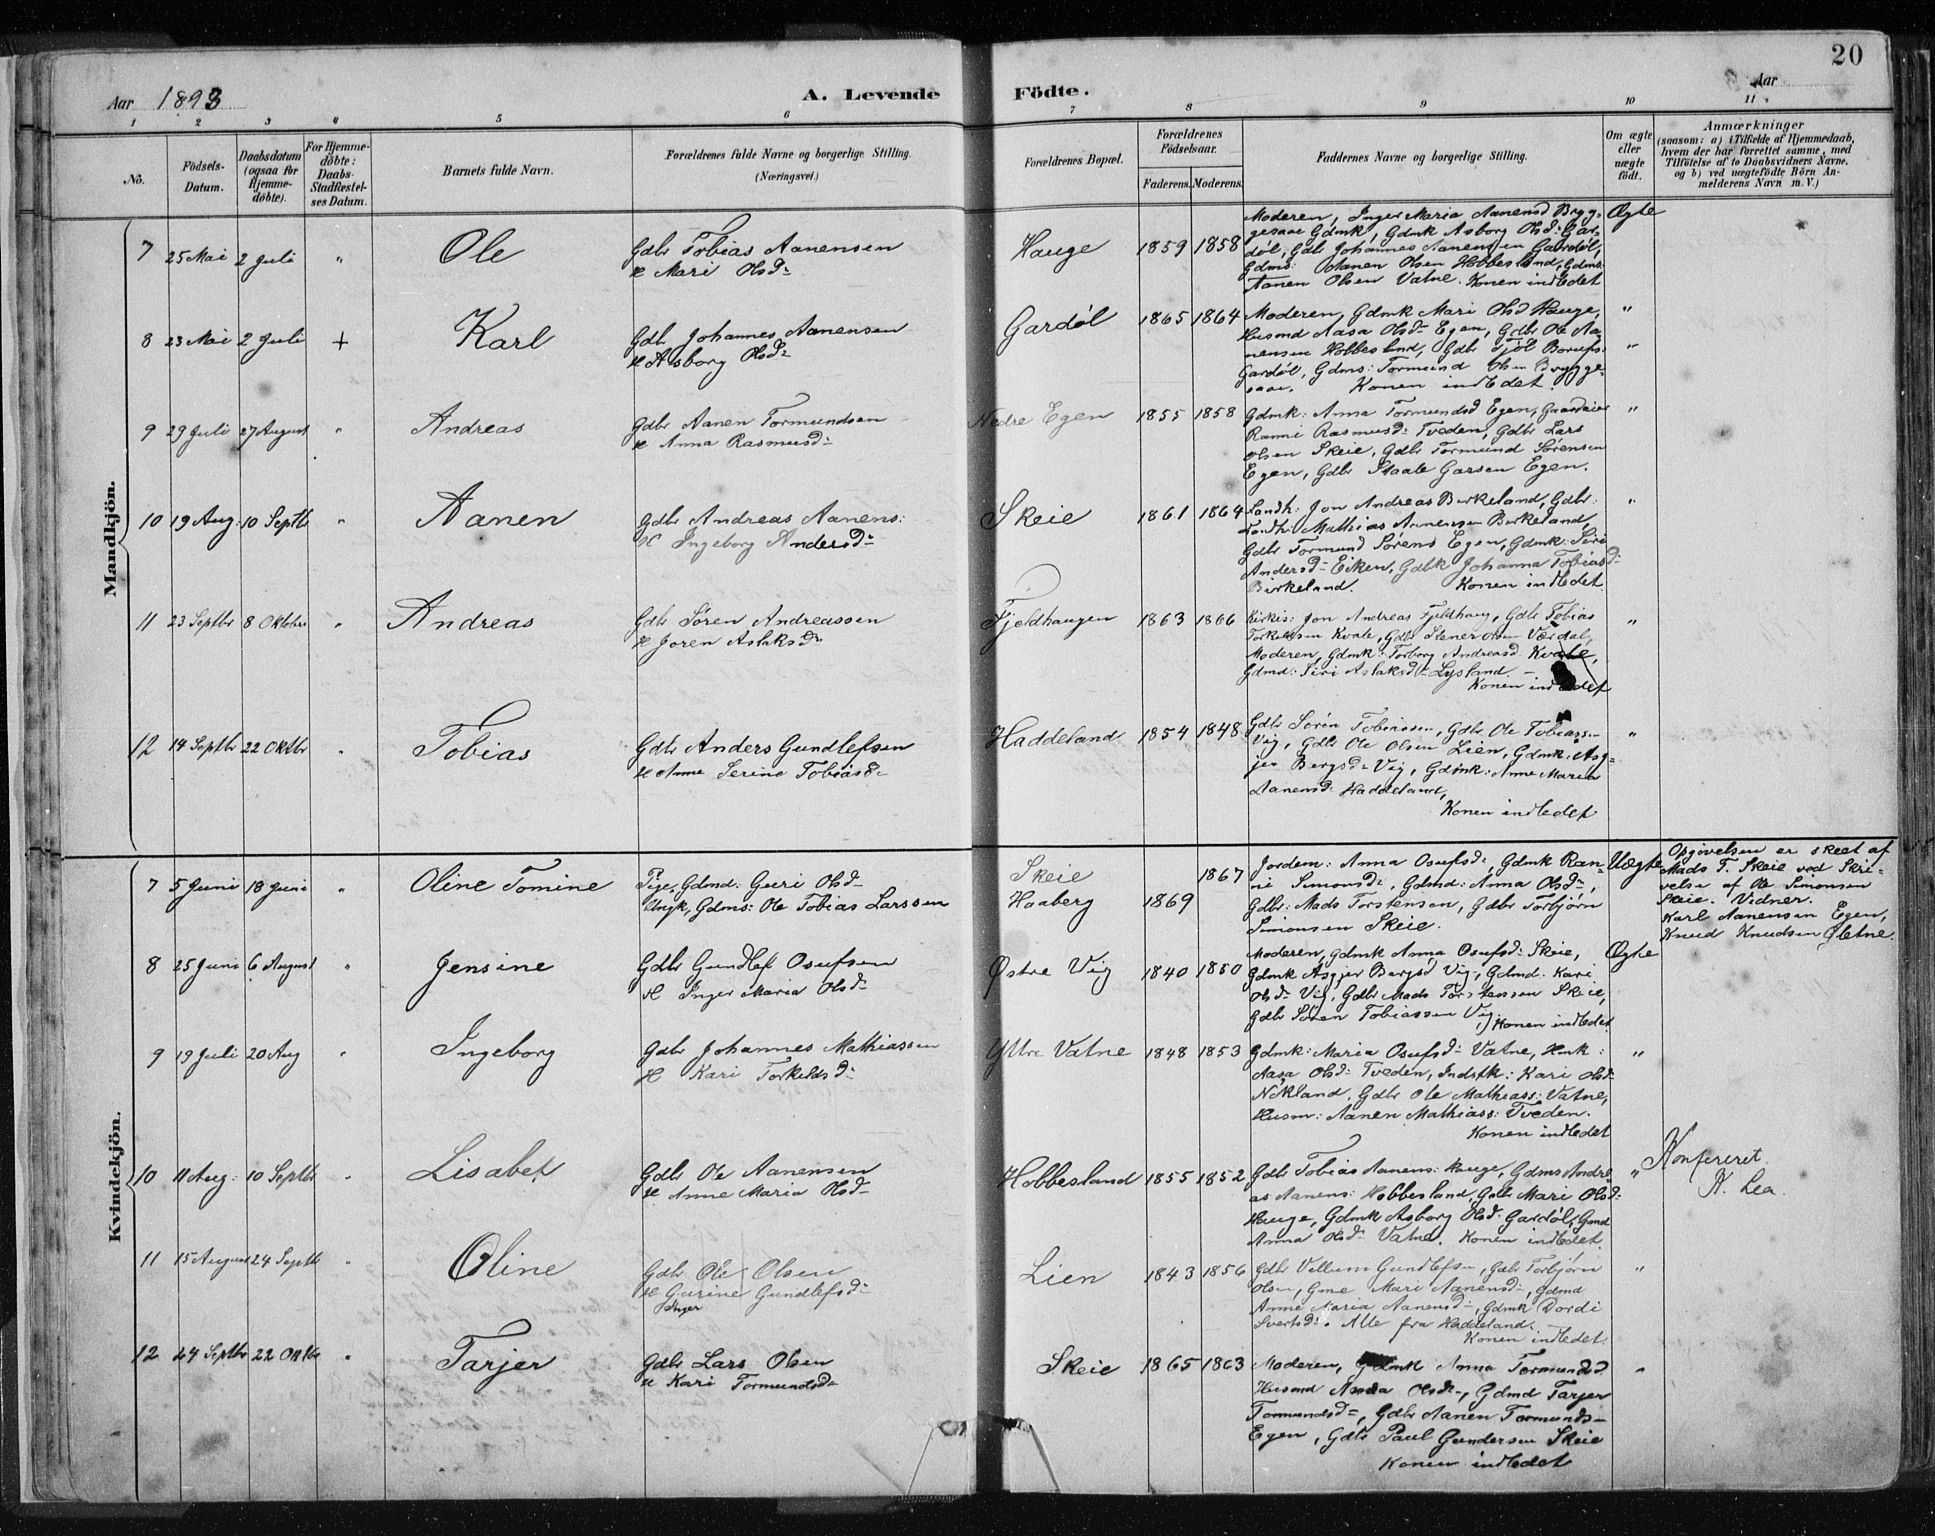 20
Aar 1893
A. Levende Födte.
Aar
1 2 3 4 5 6 7 8 9 10 11.
No.
Födsels-Datum.
Daabsdatum (ogsaa for Hjemme-döbte).
For Hjemme-döbte: Daabs-Stadfæstel-ses Datum.
Barnets fulde Navn.
Forældrenes fulde Navne og borgerlige Stilling.
(Næringsvei.)
Forældrenes Bopæl.
Forældrenes Födselsaar.
Faderens. Moderens.
Faddernes Navne og borgerlige Stilling.
Om ægte eller uægte födt.
Anmærkninger
(saasom: a) i Tilfælde af Hjemmedaab,
hvem der har forrettet samme, med
Tilföielse af to Daabsvidners Navne.
og b) ved uægtefödte Börn An-
melderens Navn m. V.)
Mandkjön.
7 25 Mai 2 Juli " Ole
Gdbr Tobias Aanensen
H Mari Olsd:
Hauge 1859 1858
Moderen, Inger Maria Aanensd Bryg-
gesaae Gdmk, Gdmk Asborg Olsd: Gar-
døl, Gdbr Johannes Aanensen Gardøl,
Gdms: Aanen Olsen Hobbesland, Gdms:
Aanen Olsen Vatne. Konen indledet
Ægte
8 23 Mai 2 Juli + Karl
Gdbr Johannes Aanensen
H Asborg Olsd:
Gardøl 1865 1864
Moderen, Gdmk Mari Olsd Hauge,
Husmd Aasa Olsd: Egen, Gdbr Ole Aa-
nensen Hobbesland, Gdbr
Gardøl, Gdms: Tormund Olsen Brygge-
saae. Konen indledet.
"
"
9 29 Juli 27 August " Andreas
Gdbr Aanen Tormundsen
H Anna Rasmusd:
Nedre Egen 1855 1858
Gdmk: Anna Tormundsd Egen,
Ranni Rasmusd: Tveden, Gdbr Lars
Olsen Skeie, Gdbr Tormund Sørensen
Egen, Gdbr Staale Garsen Egen.
"
10 19 Aug: 10 Septbr " Aanen
Gdbr Andreas Aanens:
H Ingeborg Andersd:
Skeie 1861 1864
Landh: Jon Andreas Birkeland, Gdbr:
Landh: Mathias Aanensen Birkeland,
Gdbr Tormund Sørens Egen, Gdmk: Siri
Andersd: Eiken, Gdbk Johanna Tobiasd:
Birkeland. Konen indledet
"
11 23 Septbr 8 Oktober " Andreas
Gdbr Søren Andreassen
H Joren Aslaksd:
Fjeldhaugen 1863 1866
Kirkes: Jon Andreas Fjeldhaug, Gdbr Tobias
Torkelsen Kvale, Gdbr Stener Olsen Værdal,
Moderen, Gdmk: Torborg Andreasd: Kvale,
Gdmd: Siri Aslaksd: Lysland. -
Konen indledet
"
12 14 Septbr 22 Oktbr " Tobias
Gdbr Anders Gundlefsen
H Anne Serine Tobiasd:
Haddeland 1854 1848
Gdbr Sørin Tobiassen, Gdbr Ole Tobiass:
Vig, Gdbr Ole Olsen Lien, Gdmk: Asg-
jer Bergsd: Vig, Gdmk: Anne Maria
Aanensd: Haddeland,
Konen indledet
"
Kvindekjön.
7 5 Juni 18 Juni " Oline Tomine
Pige, Gdmd: Guri Olsd:
Ungk, Gdms: Ole Tobias Larssen
Skeie 1867
Haaberg 1869
Jordem: Anna Osufsd:, Gdmk Ran-
ni Simonsd:, Gdmd: Anna Olsd:,
Gdbr: Mads Torstensen, Gdbr Torbjørn
Simonsen Skeie.
Uægte
Opgivelsen er skeet af
Mads T. Skeie ved Skri-
velse af Ole Simonsen
Skeie. Vidner.
Karl Aanensen Egen,
Knud Knudsen Øletne.
8 25 Juni 6 August " Jensine
Gdbr Gundlef Osufsen
H Inger Maria Olsd:
Østre Vig 1840 1850
Moderen, Gdmk Anna Osufsd: Skeie,
Gdmk Asgjer Bergsd Vig, Gdmd: Kari
Olsd: Vig, Gdbr Mads Torstensen Skeie,
Gdbr Søren Tobiassen Vig, Konen indledet
Ægte
9 19 Juli 20 Aug " Ingeborg
Gdbr Johannes Mathiassen
H Kari Torkeldsd:
Ytre Vatne 1848 1853
Gdmk: Maria Osufsd: Vatne, Hmk:
Aasa Olsd: Tveden, Indstk: Kari Olsd:
Nokland, Gdbr Ole Mathiass: Vatne,
Husm: Aanen Mathiass: Tveden.
Konen indledet
"
10 11 Aug: 10 Septbr " Lisabet
Gdbr Ole Aanensen
H Anne Maria Olsd:
Hobbesland 1855 1852
Gdbr Tobias Aanens: Hauge, Gdms Andre-
as Aanens: Hobbesland, Gdbr Mari Olsd:
Hauge, Gdmk Asborg Olsd: Gardøl, Gdmd
Anna Olsd: Vatne. Konen indledet.
"
Konfereret
K. Lea.
11 15 August 24 Septbr " Oline
Gdbr Ole Olsen
H Gurine Gundlefsd:
Inger
Lien 1843 1856
Gdbr Vellum Gundlefsen, Gdbr Torbjørn
Olsen, Gme Mari Aanensd:, Gdmd
Anne Maria Aanensd:, Gdmk Dordi
Sivertsd:. Alle fra Haddeland.
Konen indledet.
"
12 24 Septbr 22 Oktbr " Tarjer
Gdbr Lars Olsen
H Kari Tormundsd:
Skeie 1865 1863
Moderen, Gdmk Anna Tormundsd
Husmd Anna Olsd:, Gdmd Tarjer
Tormundsd:, Gdbr Aanen Tormunds-
Egen, Gdbr Paul Gundersen Skeie
Konen indledet
"